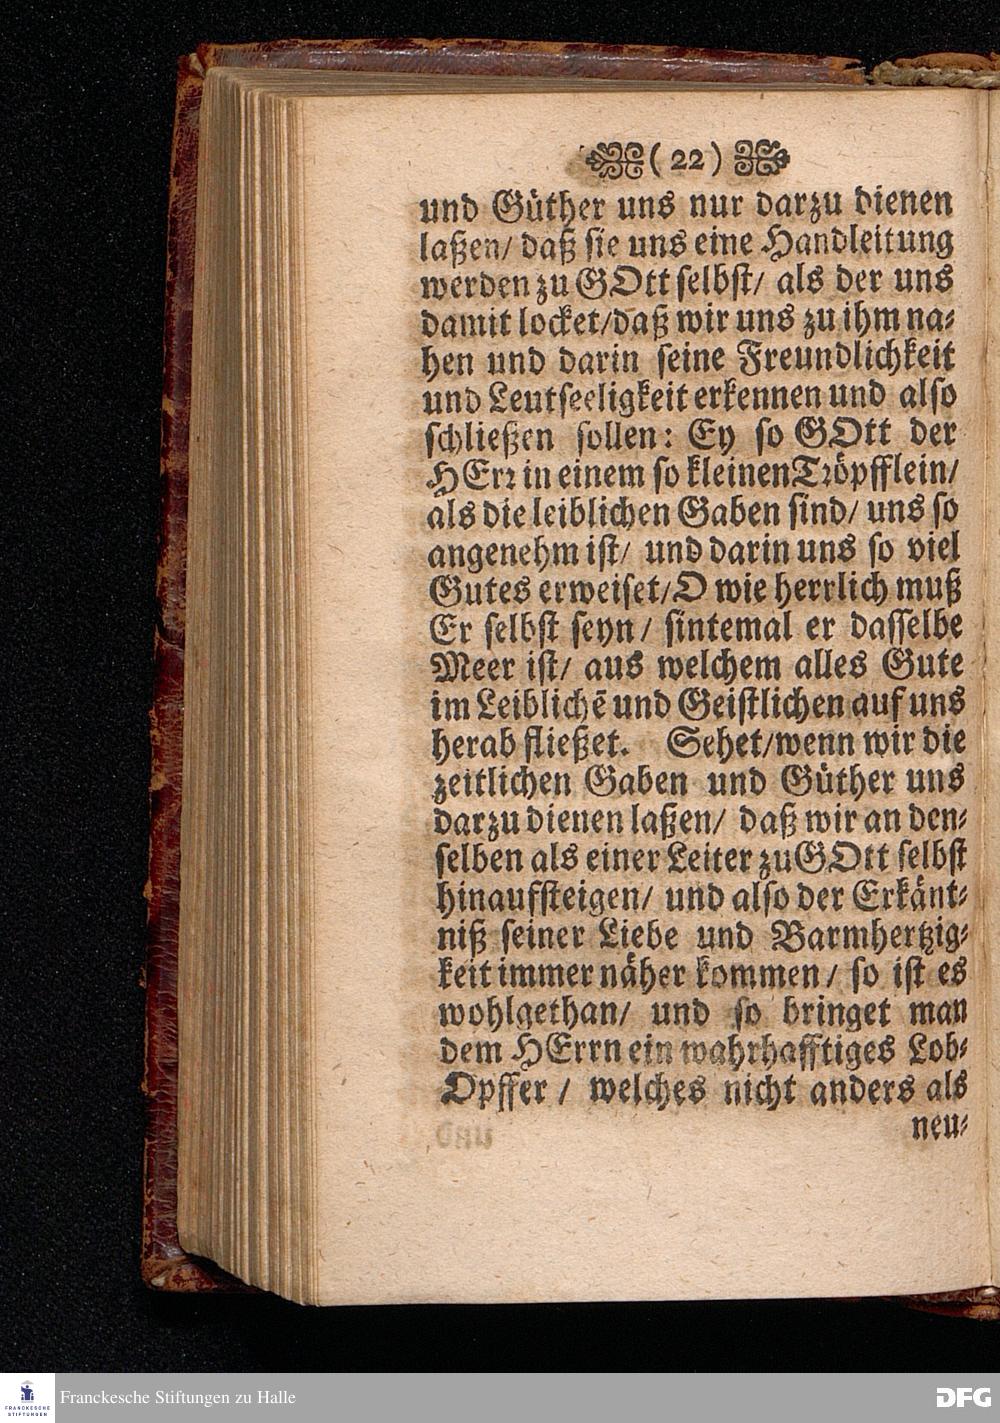 ( 22 )
und Güther uns nur darzu dienen
laßen/ daß sie uns eine Handleitung
werden zu GOtt selbst/ als der uns
damit locket/daß wir uns zu ihm na-
hen und darin seine Freundlichkeit
und Leutseeligkeit erkennen und also
schließen sollen: Ey so GOtt der
HErr in einem so kleinen Tröpfflein/
als die leiblichen Gaben sind/ uns so
angenehm ist/ und darin uns so viel
Gutes erweiset/O wie herrlich muß
Er selbst seyn/ sintemal er dasselbe
Meer ist/ aus welchem alles Gute
im Leiblichē und Geistlichen auf uns
herab fließet. Sehet/wenn wir die
zeitlichen Gaben und Güther uns
darzu dienen laßen/ daß wir an den-
selben als einer Leiter zu GOtt selbst
hinaufsteigen/ und also der Erkänt-
niß seiner Liebe und Barmhertzig-
keit immer näher kommen/ so ist es
wohlgethan/ und so bringet man
dem HErrn ein wahrhafftiges Lob-
Opffer / welches nicht anders als
neu-
FRANCKESCHE
STIFTUNGEN
Franckesche Stiftungen zu Halle
DFG